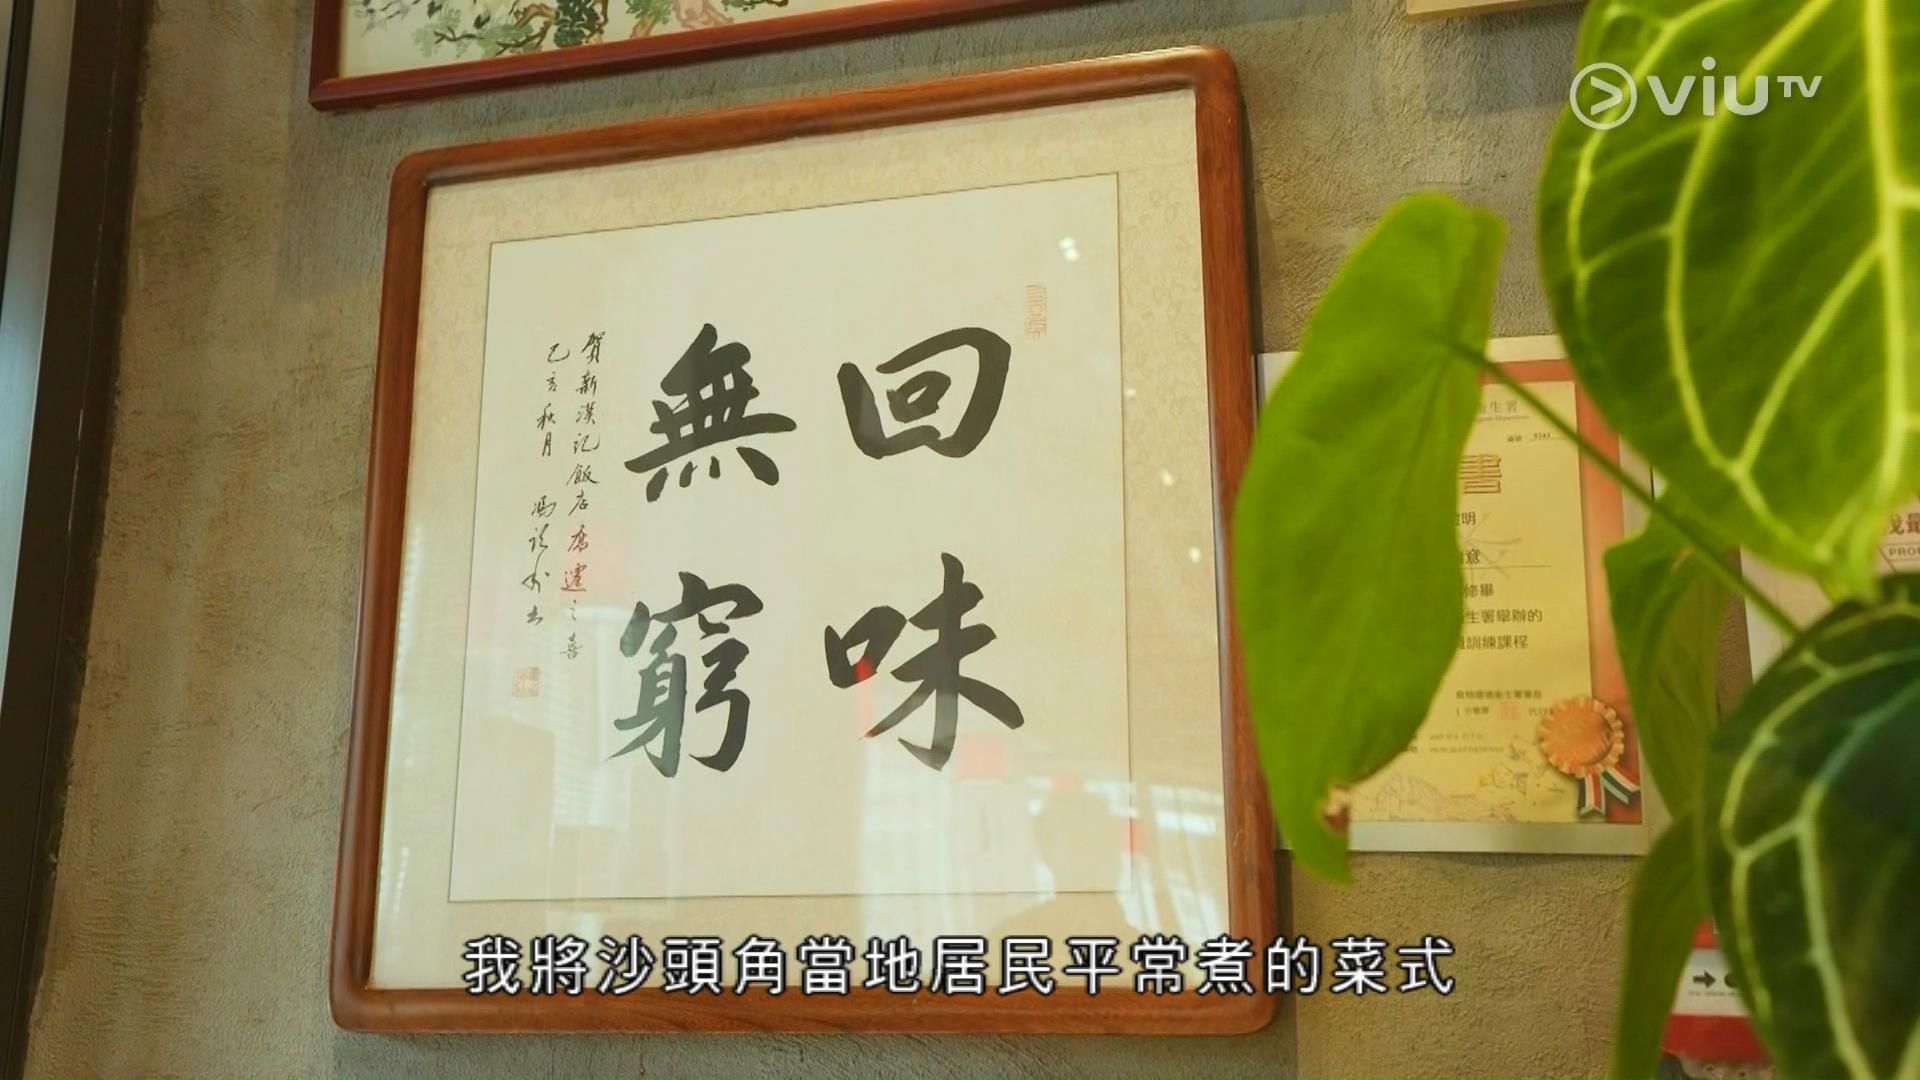 viuTV
回味
無窮
賀新漢記飯店喬遷之喜
己亥秋月
生署
9243
書
明
意
修畢
生署舉辦的
訓練課程
食物環境衞生署署長
我最
PRO
我將沙頭角當地居民平常煮的菜式